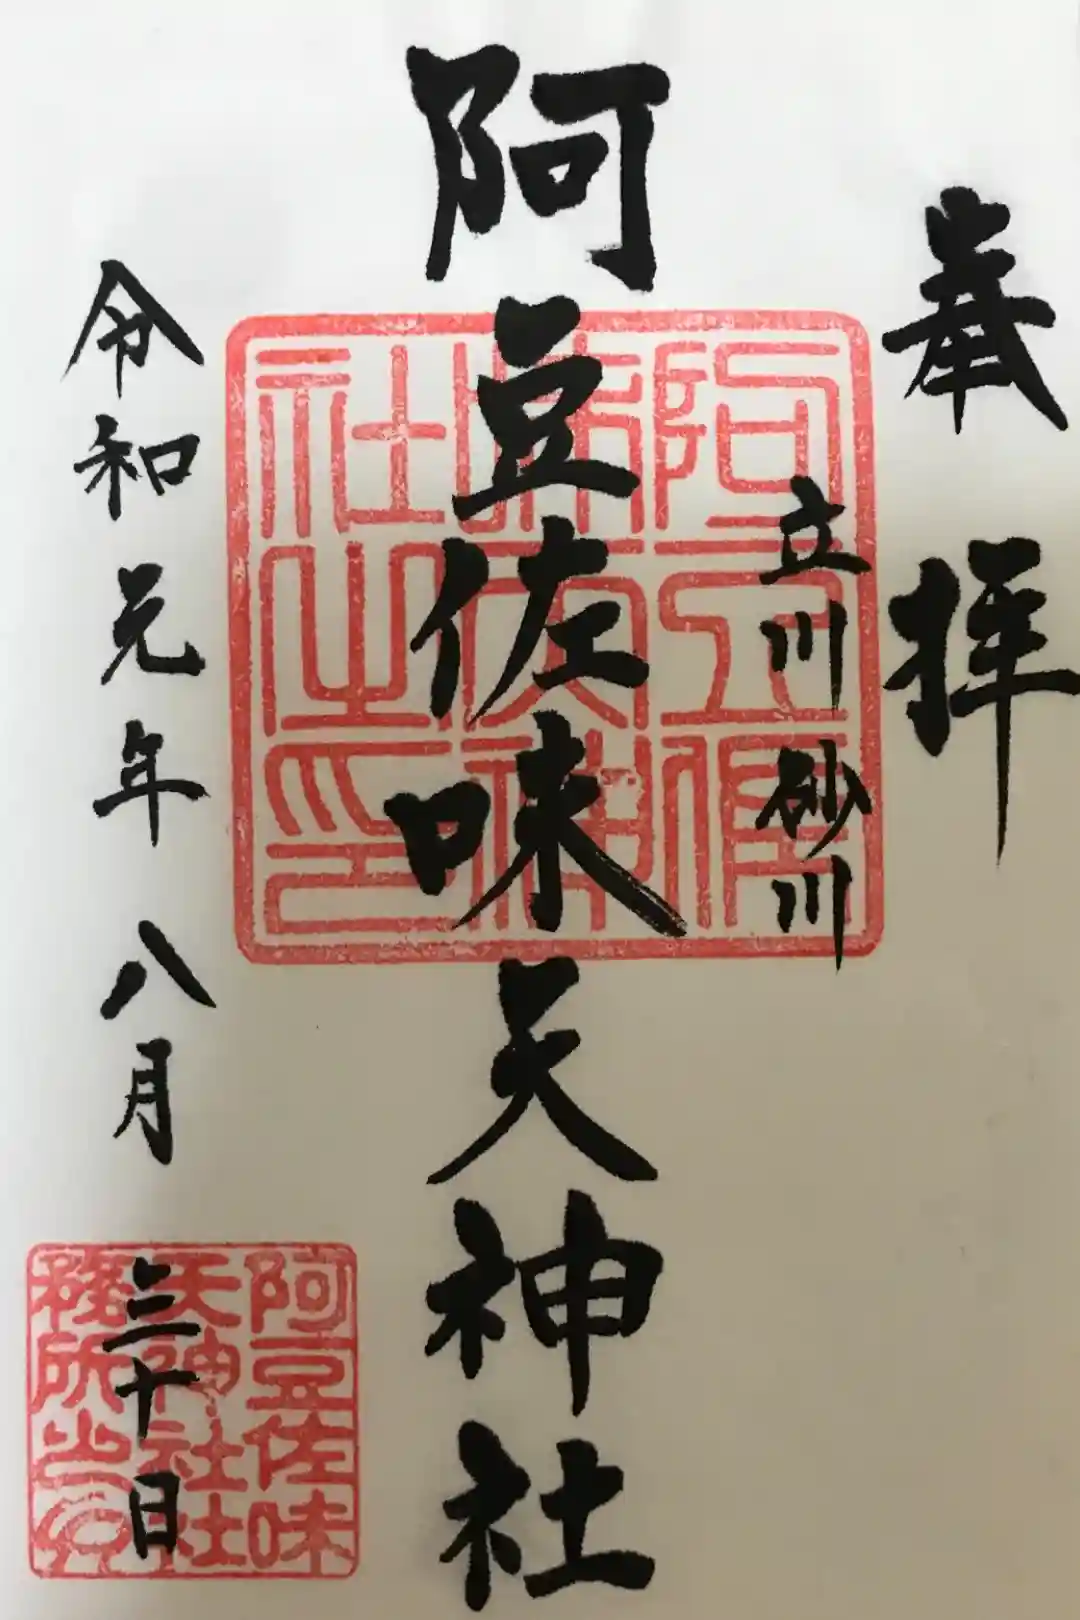 奉拝
立川砂川
阿豆佐味天神社
令和元年八月三十日
阿豆佐味
天神社社
務所之印